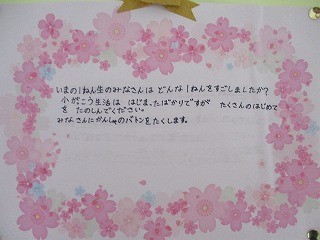 いまの1ねん生のみなさんは どんな1ねんをすごしましたか?
小がっこう生活は はじまったばかりですが たくさんのはじめて
を たのしんでください。
みなさんにかんしゃのバトンをたくします。